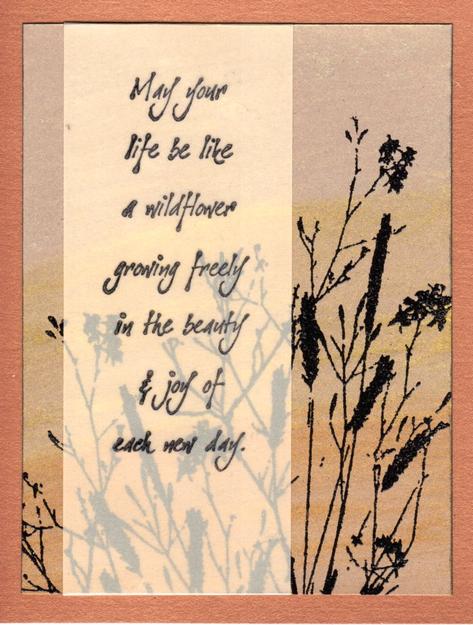 May your
life be like
a wildflower
growing freely
in the beauty
& joy of
each new day.